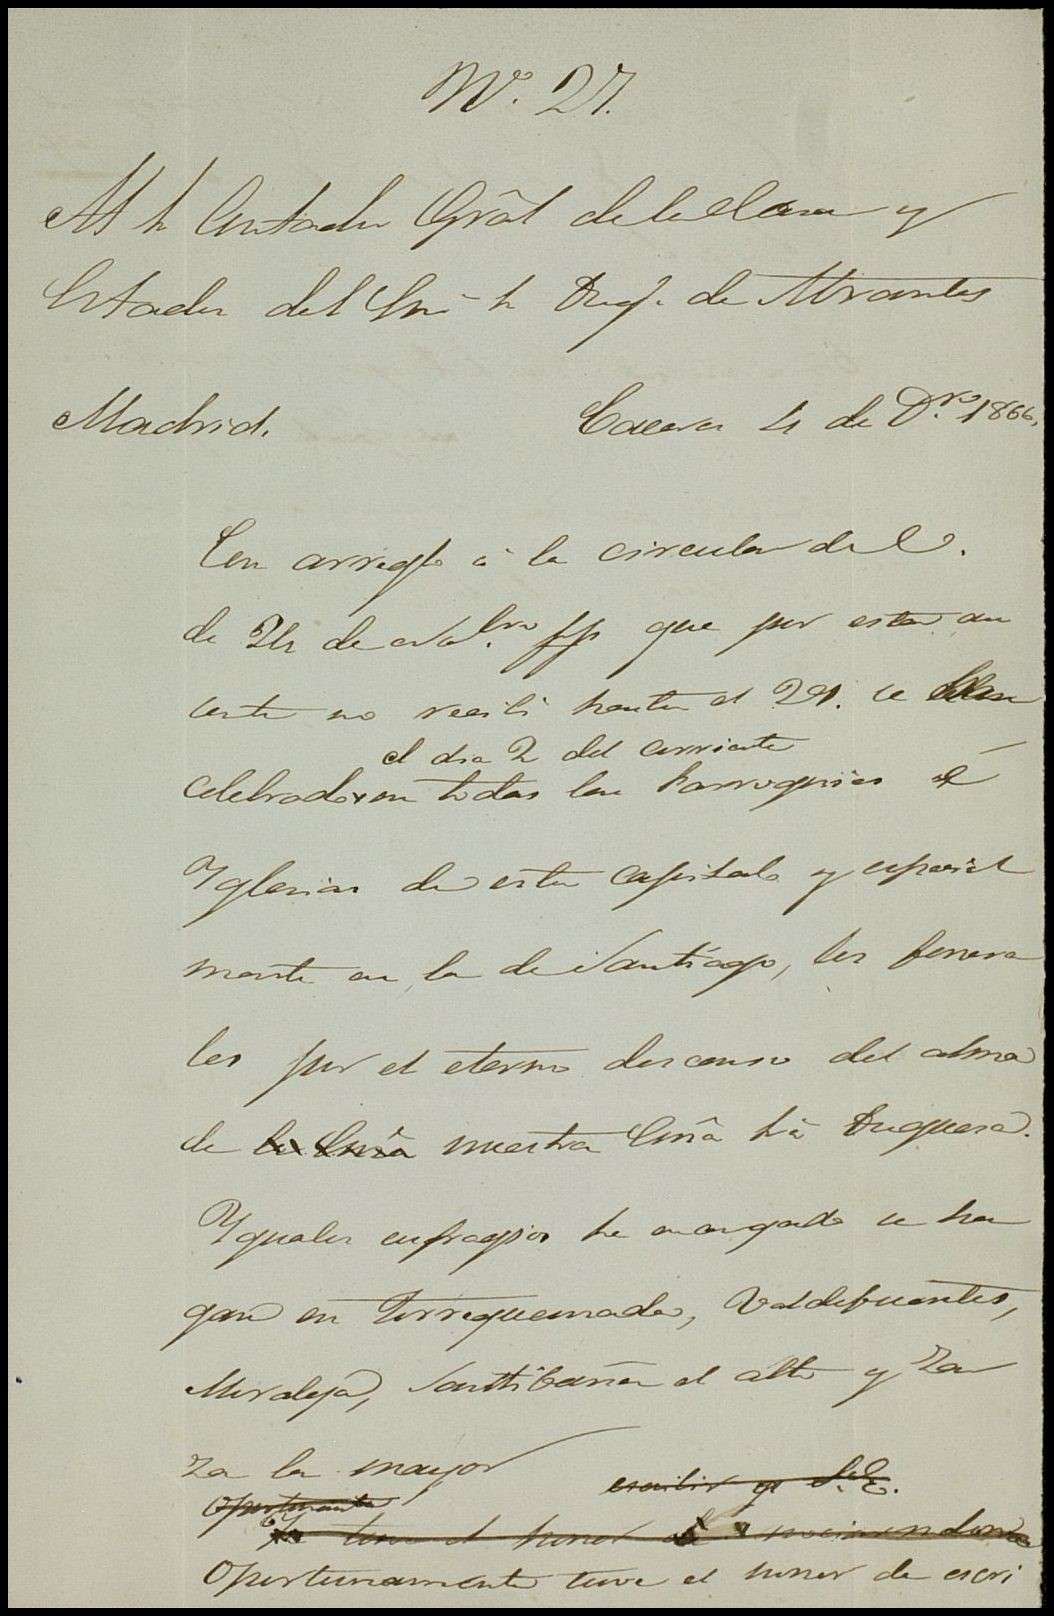 N.º 27.
Al Sr Contador Gràl de la Casa y
Estados del Exmo Sr Duq.e de Abrantes
Madrid. Caceres 4 de D.re 1866.
Con arreglo á la circular de V.
de 24 de Nobre ppº que por estar au
sente no recibi hasta el 29. se han
el dia 2 del corriente
celebrado en todas las Parroquias é
Yglesias de esta capital y especial
mente en la de Santiago, los funera
les por el eterno descanso del alma
de la Exmã nuestra Exmã Srã Duquesa.
Yguales sufragios he encargado se ha
gan en Torrequemada, Valdefuentes,
Moraleja, Santibañez el alto y Zar
za la mayor
escribir á S.E.
Oportunamte
tuve el honor de
Oportunamente tuve el honor de escri